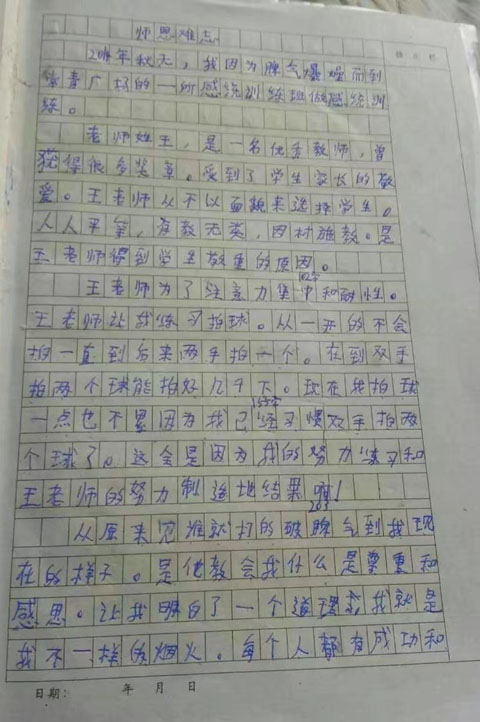 师恩难忘
年秋天，我因为脾气爆燥而到
广场的一所感统训练班做感统训
练。
老师姓王，是一名优秀教师，曾
获得很多奖章。受到了学生家长的敬
爱。王老师从不以面貌来选择学生。
人人平等，有教无类，因材施教。是
王老师得到学生敬重的原因。
王老师为了注意力集中和耐性。
王老师让我练习拍球。从一开的不会
拍一直到后来两手拍一个。在到双手
拍两个球能拍好几千下。现在我拍球
一点也不累因为我已经习惯双手拍两
个球了。这全是因为我的努力练习和
王老师的努力制造地结果啊！
从原来见谁就打的破脾气到我现
在的样子。是他教会我什么是尊重和
感恩。让我明白了一个道理，我就是
我不一样的烟火。每个人都有成功和
日期： 年 月 日